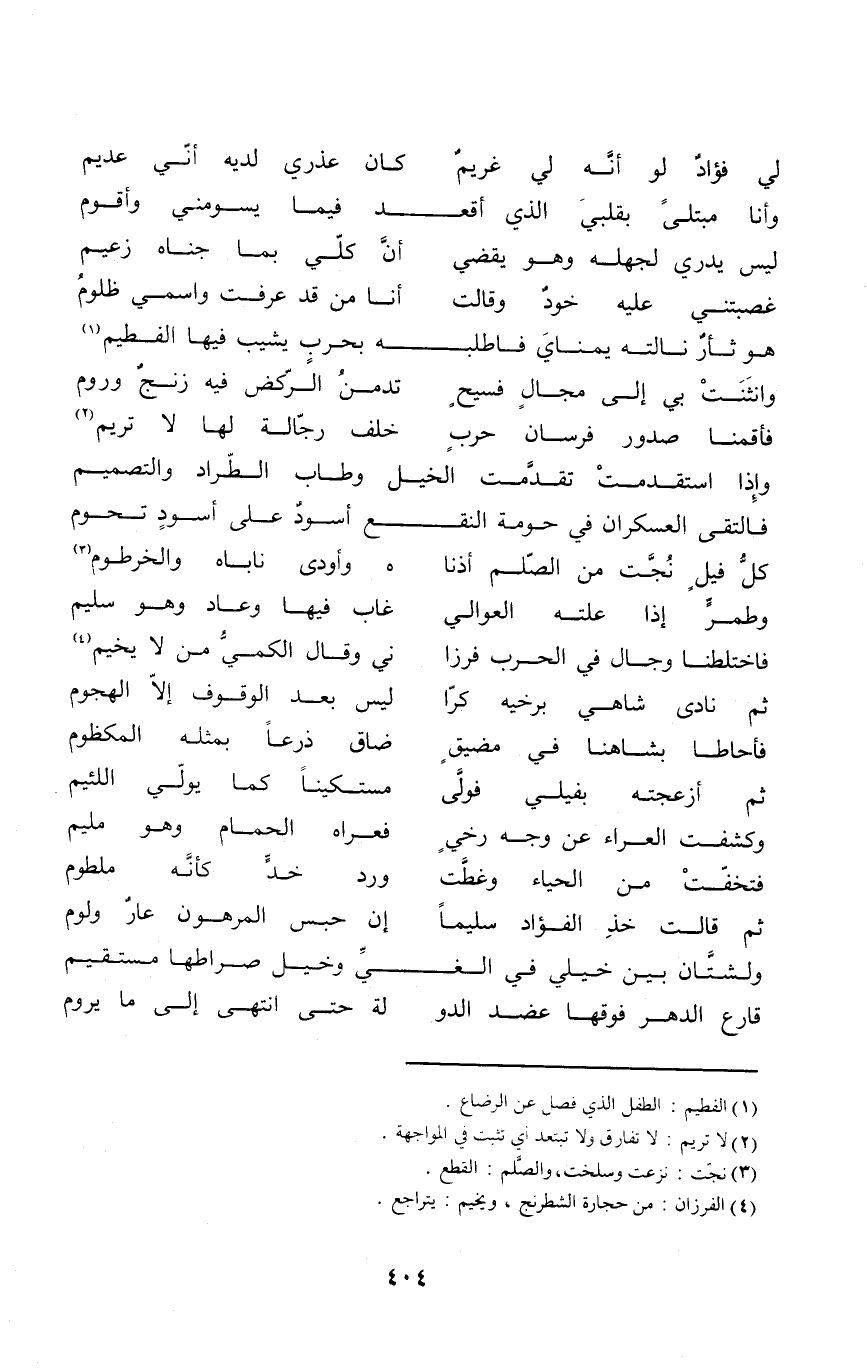 لي فؤادٌ لو أنَّه لي غريمٌ كان عذري لديه أنّي عديم
وأنا مبتلىً بقلبيَ الذي أقعد فيما يسومني وأقوم
ليس يدري لجهله وهو يقضي أنَّ كلّي بما جناه زعيم
غصبتني عليه خودٌ وقالت أنا من قد عرفت واسمي ظلومُ
هو ثأرٌ نالته يمنايَ فاطلبه بحربٍ يشيب فيها الفطيم(١)
وانثَنَتْ بي إلى مجالٍ فسيحٍ تدمنُ الركض فيه زنجٌ وروم
فأقمنا صدور فرسان حربٍ خلف رجّالة لها لا تريم(٢)
وإذا استقدمتْ تقدَّمت الخيل وطاب الطّراد والتصميم
فالتقى العسكران في حومة النقع أسودٌ على أسودٍ تحوم
كلُّ فيلٍ نُجَّت من الصّلم أذناه وأودى ناباه والخرطوم(٣)
وطمرٍّ إذا علته العوالي غاب فيها وعاد وهو سليم
فاختلطنا وجال في الحرب فرزاني وقال الكميُّ من لا يخيم(٤)
ثم نادى شاهي برخيه كرّا ليس بعد الوقوف إلاّ الهجوم
فأحاطا بشاهنا في مضيقٍ ضاق ذرعاً بمثله المكظوم
ثم أزعجته بفيلي فولَّى مستكيناً كما يولّي اللئيم
وكشفت العراء عن وجه رخيٍ فعراه الحمام وهو مليم
فتخفّتْ من الحياء وغطَّت ورد خدٍّ كأنَّه ملطوم
ثم قالت خذِ الفؤاد سليماً إن حبس المرهون عارٌ ولوم
ولشتَّان بين خيلي في الغيِّ وخيل صراطها مستقيم
قارع الدهر فوقها عضد الدولة حتى انتهى إلى ما يروم
(١) الفطيم : الطفل الذي فصل عن الرضاع .
(٢) لا تريم : لا تفارق ولا تبتعد أي تثبت في المواجهة .
(٣) نجّت : نزعت وسلخت، والصَّلم : القطع .
(٤) الفرزان : من حجارة الشطرنج ، ويخيم : يتراجع .
٤٠٤